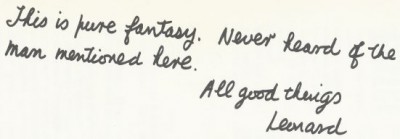 This is pure fantasy. Never heard of the
man mentioned here.
All good things
Leonard